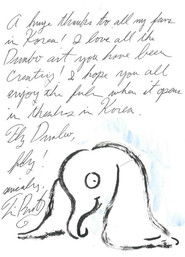 A huge thanks to all my fans
in Korea! I love all the
Dumbo art you have been
creating! I hope you all
enjoy the film when it opens
in theatres in Korea.
Fly Dumbo,
fly!